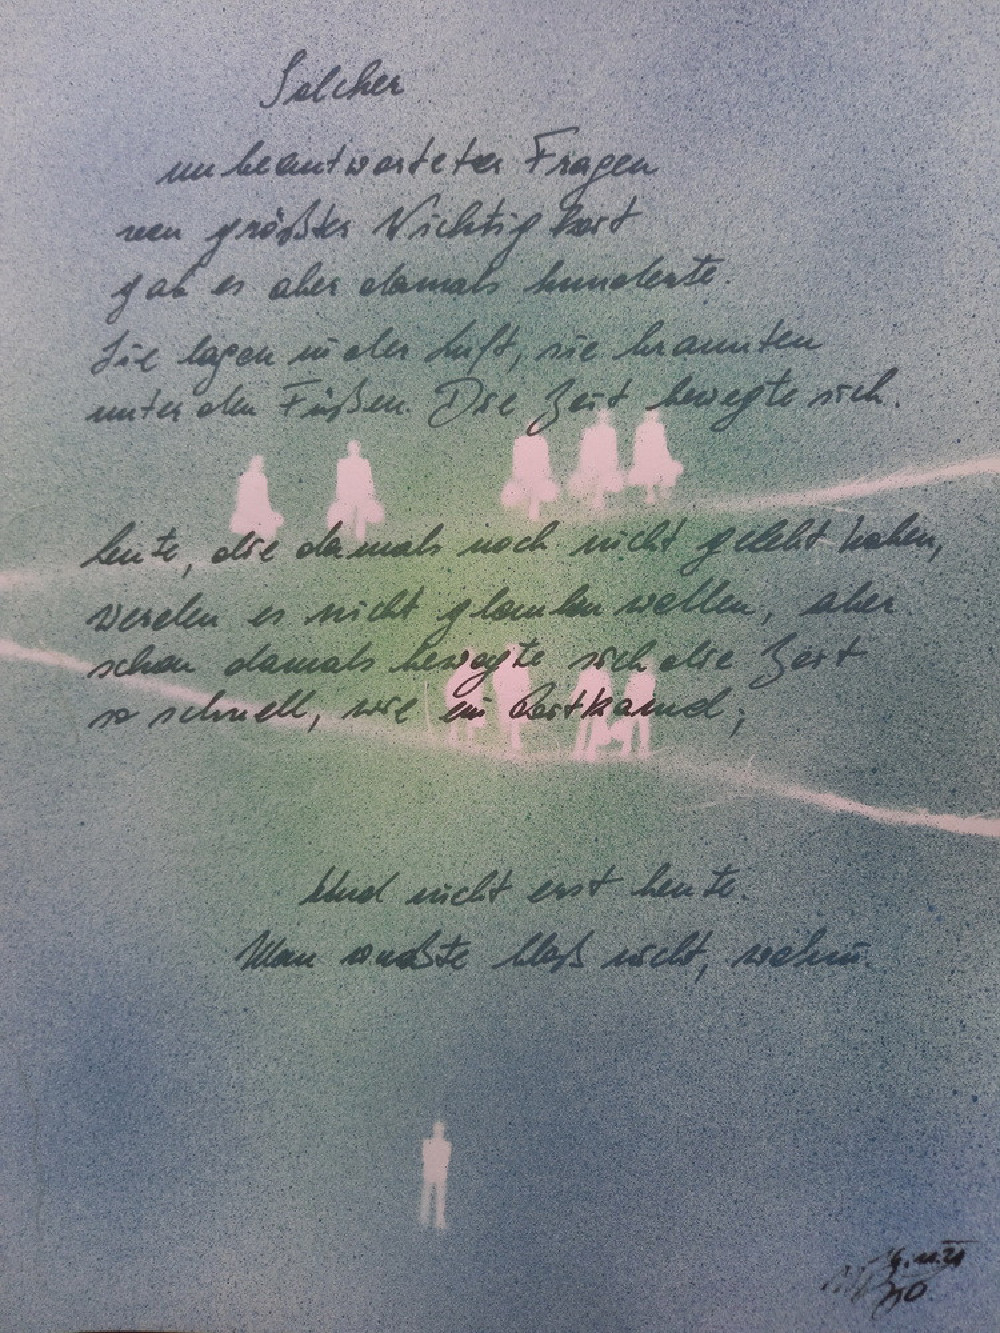 Solcher
unbeantworteter Fragen
von größter Wichtigkeit
gab es aber damals hunderte.
Sie lagen in der Luft, sie brannten
unter den Füßen. Die Zeit bewegte sich.
Leute, die damals noch nicht gelebt haben,
werden es nicht glauben wollen, aber
schon damals bewegte sich die Zeit
so schnell, wie ein Reitkamel;
Und nicht erst heute.
Man wußte bloß nicht, wohin.